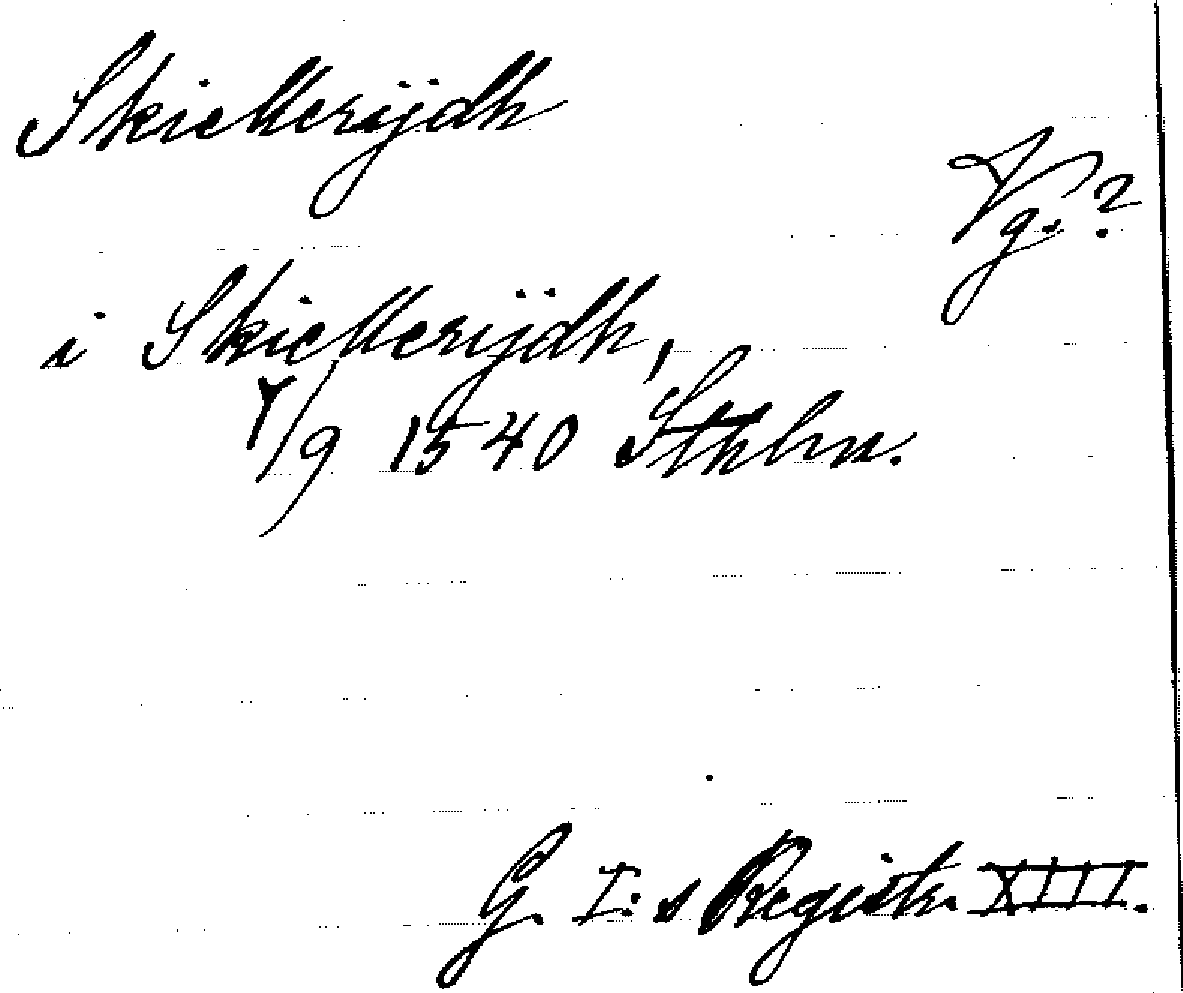 Skiellerijdh
Vg.?
i Skiellerijdh,
7/9 1540 Sthlm.
G. I:s Registr. XIII.